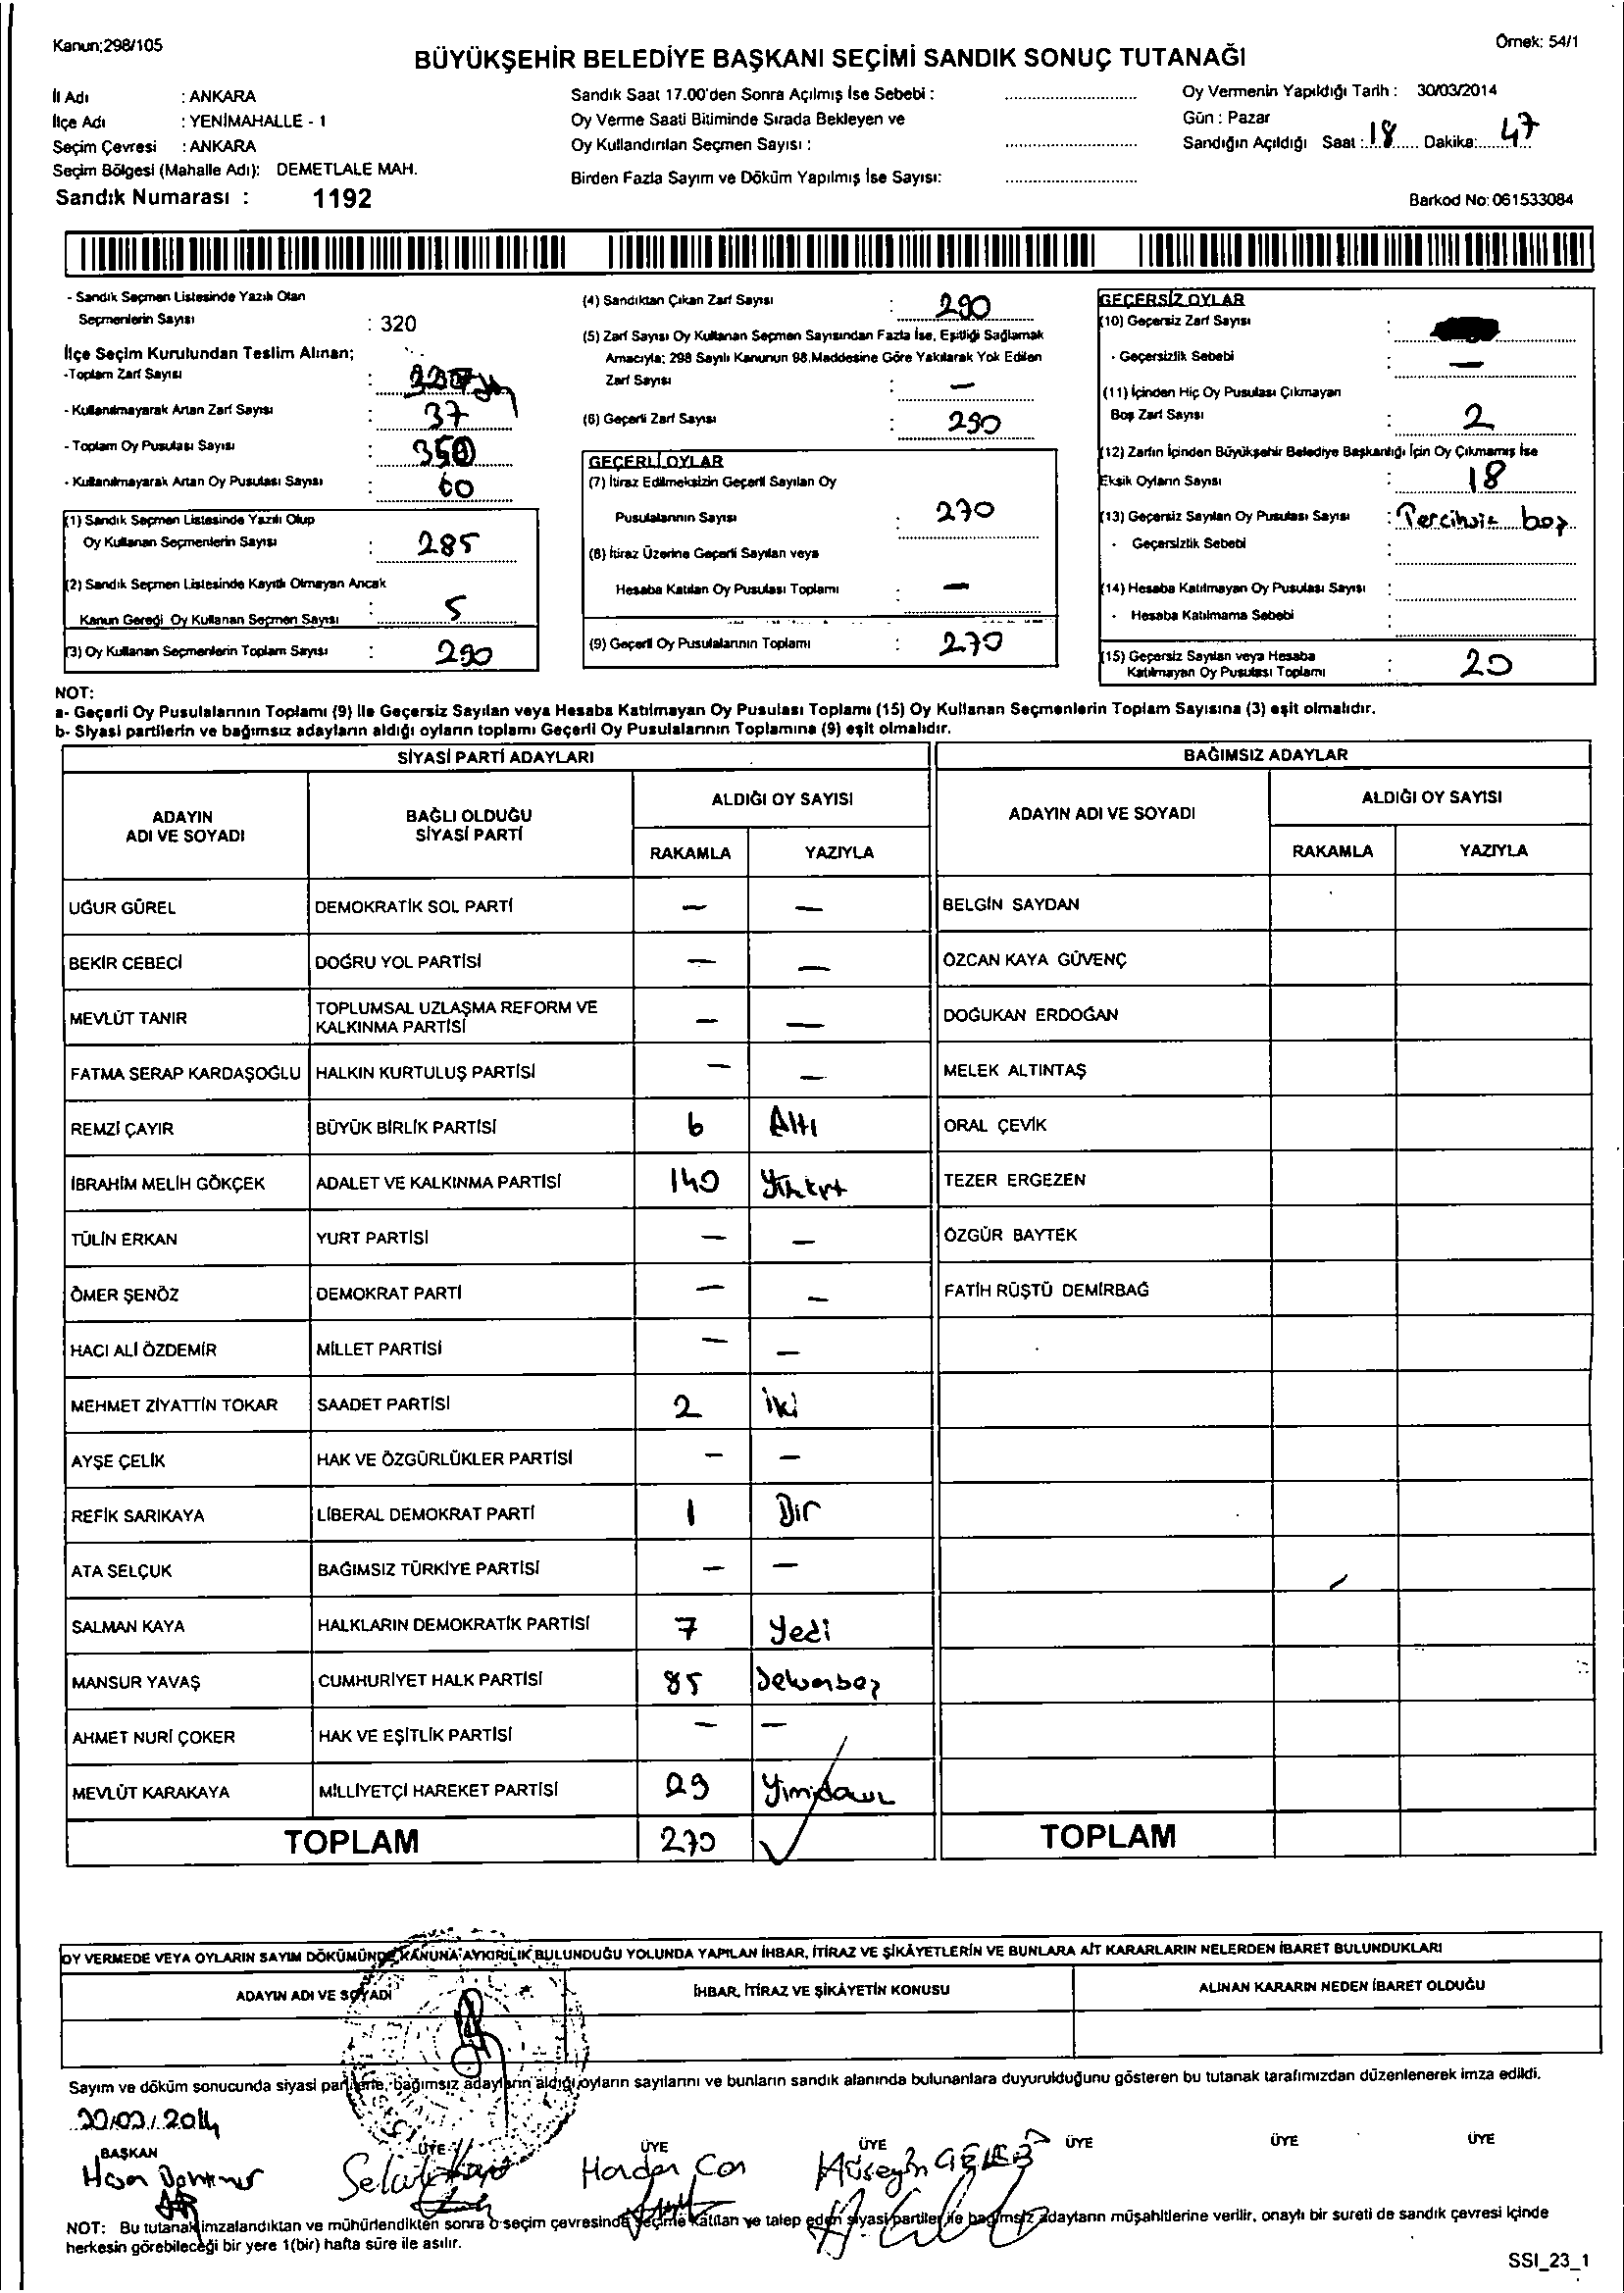 Kanun;298/105
Örnek: 54/1
BÜYÜKŞEHİR BELEDİYE BAŞKANI SEÇİMİ SANDIK SONUÇ TUTANAĞI
İl Adı : ANKARA
İlçe Adı : YENİMAHALLE - 1
Seçim Çevresi : ANKARA
Seçim Bölgesi (Mahalle Adı): DEMETLALE MAH.
Sandık Numarası : 1192
Sandık Saat 17.00'den Sonra Açılmış İse Sebebi :
Oy Verme Saati Bitiminde Sırada Bekleyen ve
Oy Kullandırılan Seçmen Sayısı :
Birden Fazla Sayım ve Döküm Yapılmış İse Sayısı:
Oy Vermenin Yapıldığı Tarih : 30/03/2014
Gün : Pazar
Sandığın Açıldığı Saat : 18 Dakika: 47
Barkod No: 061533084
- Sandık Seçmen Listesinde Yazılı Olan
Seçmenlerin Sayısı : 320
İlçe Seçim Kurulundan Teslim Alınan;
-Toplam Zarf Sayısı :
- Kullanılmayarak Artan Zarf Sayısı : 37
- Toplam Oy Pusulası Sayısı : 350
- Kullanılmayarak Artan Oy Pusulası Sayısı : 60
(1) Sandık Seçmen Listesinde Yazılı Olup
Oy Kullanan Seçmenlerin Sayısı : 285
(2) Sandık Seçmen Listesinde Kayıtlı Olmayan Ancak
Kanun Gereği Oy Kullanan Seçmen Sayısı : 5
(3) Oy Kullanan Seçmenlerin Toplam Sayısı : 290
(4) Sandıktan Çıkan Zarf Sayısı : 290
(5) Zarf Sayısı Oy Kullanan Seçmen Sayısından Fazla İse, Eşitliği Sağlamak
Amacıyla; 298 Sayılı Kanunun 98.Maddesine Göre Yakılarak Yok Edilen
Zarf Sayısı : —
(6) Geçerli Zarf Sayısı : 290
GEÇERLİ OYLAR
(7) İtiraz Edilmeksizin Geçerli Sayılan Oy
Pusulalarının Sayısı : 270
(8) İtiraz Üzerine Geçerli Sayılan veya
Hesaba Katılan Oy Pusulası Toplamı : —
(9) Geçerli Oy Pusulalarının Toplamı : 270
GEÇERSİZ OYLAR
(10) Geçersiz Zarf Sayısı :
- Geçersizlik Sebebi : —
(11) İçinden Hiç Oy Pusulası Çıkmayan
Boş Zarf Sayısı : 2
(12) Zarfın İçinden Büyükşehir Belediye Başkanlığı İçin Oy Çıkmamış İse
Eksik Oyların Sayısı : 18
(13) Geçersiz Sayılan Oy Pusulası Sayısı : Tercihsiz boş
- Geçersizlik Sebebi :
(14) Hesaba Katılmayan Oy Pusulası Sayısı :
- Hesaba Katılmama Sebebi :
(15) Geçersiz Sayılan veya Hesaba
Katılmayan Oy Pusulası Toplamı : 20
NOT:
a- Geçerli Oy Pusulalarının Toplamı (9) ile Geçersiz Sayılan veya Hesaba Katılmayan Oy Pusulası Toplamı (15) Oy Kullanan Seçmenlerin Toplam Sayısına (3) eşit olmalıdır.
b- Siyasi partilerin ve bağımsız adayların aldığı oyların toplamı Geçerli Oy Pusulalarının Toplamına (9) eşit olmalıdır.
SİYASİ PARTİ ADAYLARI
ADAYIN ADI VE SOYADI
BAĞLI OLDUĞU SİYASİ PARTİ
ALDIĞI OY SAYISI
RAKAMLA YAZIYLA
UĞUR GÜREL DEMOKRATİK SOL PARTİ — —
BEKİR CEBECİ DOĞRU YOL PARTİSİ — —
MEVLÜT TANIR TOPLUMSAL UZLAŞMA REFORM VE KALKINMA PARTİSİ — —
FATMA SERAP KARDAŞOĞLU HALKIN KURTULUŞ PARTİSİ — —
REMZİ ÇAYIR BÜYÜK BİRLİK PARTİSİ 6 Altı
İBRAHİM MELİH GÖKÇEK ADALET VE KALKINMA PARTİSİ 140
TÜLİN ERKAN YURT PARTİSİ — —
ÖMER ŞENÖZ DEMOKRAT PARTİ — —
HACI ALİ ÖZDEMİR MİLLET PARTİSİ — —
MEHMET ZİYATTİN TOKAR SAADET PARTİSİ 2 iki
AYŞE ÇELİK HAK VE ÖZGÜRLÜKLER PARTİSİ — —
REFİK SARIKAYA LİBERAL DEMOKRAT PARTİ 1 Bir
ATA SELÇUK BAĞIMSIZ TÜRKİYE PARTİSİ — —
SALMAN KAYA HALKLARIN DEMOKRATİK PARTİSİ 7 Yedi
MANSUR YAVAŞ CUMHURİYET HALK PARTİSİ 85
AHMET NURİ ÇOKER HAK VE EŞİTLİK PARTİSİ — —
MEVLÜT KARAKAYA MİLLİYETÇİ HAREKET PARTİSİ 29
TOPLAM 270
BAĞIMSIZ ADAYLAR
ADAYIN ADI VE SOYADI
ALDIĞI OY SAYISI
RAKAMLA YAZIYLA
BELGİN SAYDAN
ÖZCAN KAYA GÜVENÇ
DOĞUKAN ERDOĞAN
MELEK ALTINTAŞ
ORAL ÇEVİK
TEZER ERGEZEN
ÖZGÜR BAYTEK
FATİH RÜŞTÜ DEMİRBAĞ
TOPLAM
OY VERMEDE VEYA OYLARIN SAYIM DÖKÜMÜNDE KANUNA AYKIRILIK BULUNDUĞU YOLUNDA YAPILAN İHBAR, İTİRAZ VE ŞİKÂYETLERİN VE BUNLARA AİT KARARLARIN NELERDEN İBARET BULUNDUKLARI
ADAYIN ADI VE SOYADI
İHBAR, İTİRAZ VE ŞİKÂYETİN KONUSU
ALINAN KARARIN NEDEN İBARET OLDUĞU
Sayım ve döküm sonucunda siyasi partilerin, bağımsız adayların aldığı oyların sayılarını ve bunların sandık alanında bulunanlara duyurulduğunu gösteren bu tutanak tarafımızdan düzenlenerek imza edildi.
30/03/2014
BAŞKAN ÜYE ÜYE ÜYE ÜYE ÜYE ÜYE
Hüseyin
NOT: Bu tutanak imzalandıktan ve mühürlendikten sonra o seçim çevresinde seçime katılan ve talep eden siyasi partiler ile bağımsız adayların müşahitlerine verilir, onaylı bir sureti de sandık çevresi içinde
herkesin görebileceği bir yere 1(bir) hafta süre ile asılır.
SSI_23_1